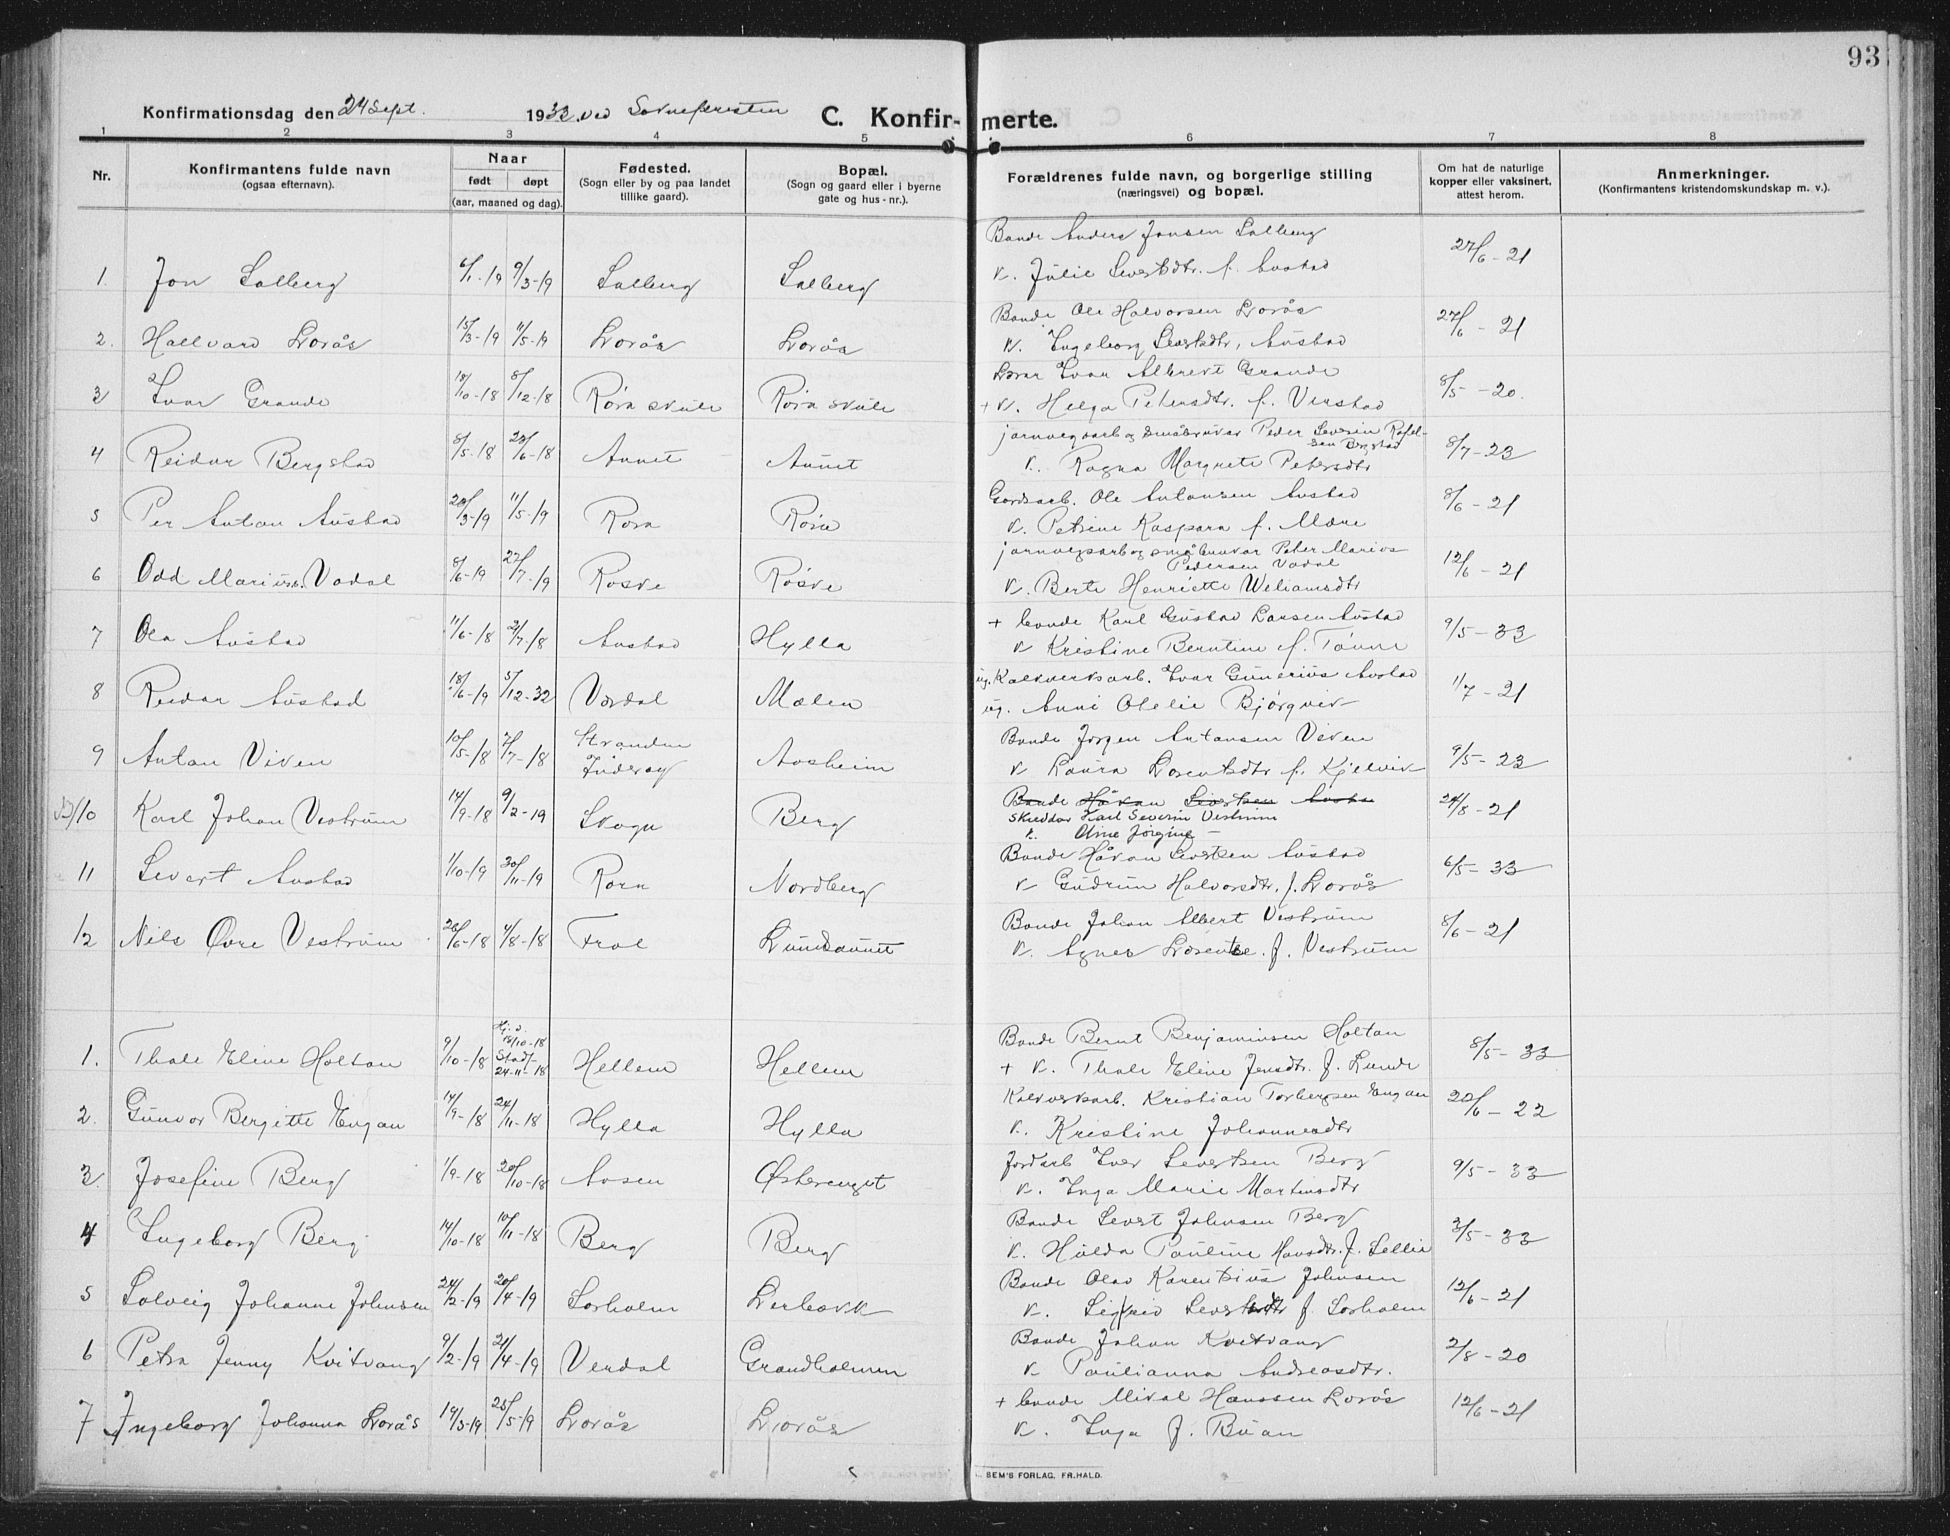 93
Konfirmationsdag den 24 Sept. 1933 ved Soknepresten C. Konfir- merte.
1 2 3 4 5 6 7 8
Nr.
Konfirmantens fulde navn
(ogsaa efternavn).
Naar
født døpt
(aar, maaned og dag).
Fødested.
(Sogn eller by og paa landet
tillike gaard).
Bopæl.
(Sogn og gaard eller i byerne
gate og hus-nr.).
Forældrenes fulde navn, og borgerlige stilling
(næringsvei) og bopæl.
Om hat de naturlige
kopper eller vaksinert,
attest herom.
Anmerkninger.
(Konfirmantens kristendomskundskap m. v.).
Bonde Anders Jonsen Salberg
1. Jon Salberg 6/1-19 9/3-19 Salberg Salberg k. Julie Severtsdtr. f. Austad 27/6-21
Bonde Ole Halvorsen Lorås
2. Hallvard Lorås 15/3-19 11/5-19 Lorås Lorås k. Ingeborg Severtsdtr, Austad 27/6-21
Lærar Ivar Albrekt Grande
3 Ivar Grande 18/10-18 8/12-18 Røra skule Røra skule + k. Helga Petersdtr. f. Verstad 8/5-20.
jarnvegsarb og småbrukar Peder Severin Rafel-
sen Bergstad
4 Reidar Bergstad 8/5-18 23/6-18 Aunet Aunet k. Ragna Margrete Petersdtr 8/7-23
Gardsarb. Ole Antonsen Austad
5 Per Anton Austad 20/3-19 11/5-19 Røra Røra k. Petrine Kaspara f. Mære 8/6-21
jarnvegsarb og småbrukar Peter Marius
Pedersen Vådal
6 Odd Marius Vådal 8/6-19 27/7-19 Rosve Røsve k. Berte Henriette Weliamsdtr 12/6-21
+ bonde Karl Gustad Larsen Austad
7 Ola Austad 11/6-18 21/7-18 Austad Hylla k Kristine Berntine f. Tønne 9/5-33
ug. Kalkverksarb. Ivar Gunerius Austad
8 Reidar Austad 18/6-19 5/12-32 Verdal Mælen ug. Anni Otelie Bjørgvik 1/7-21
Bonde Jørgen Antonsen Viven
9 Anton Viven 10/5-18 7/7-18 Stranden
Inderøy Aasheim k Laura Lorentsdtr f. Kjelvik 9/5-23
Bonde Håkon Sivertsen Austa
Skreddar Karl Severin Vestrum
10 Karl Johan Vestrum 14/9-18 9/2-19 Skogn Berg k. Oline Jørgine – 24/8-21
Bonde Håkon Severtsen Austad
11 Severt Austad 1/10-19 30/11-19 Røra Nordberg k Gudrun Halvorsdtr. f. Lorås 6/5-33
Bonde Johan Albert Vestrum
12 Nils Øvre Vestrum 26/6-18 4/8-18 Frol Lundsaunet k. Agnes Lorentse. f. Vestrum 8/6-21
Bonde Bernt Benjaminsen Holtan
1. Thale Eline Holtan 9/10-18 Hj.d.
15/10-18
Stadf-
24-11-18 Hellem Hellem + k. Thale Eline Jensdtr. f. Lunde 8/5-33
Kalkverksarb. Kristian Torbergsen Engan
2. Gunvor Bergitte Engan 14/9-18 24/11-18 Hylla Hylla k. Kristine Johannesdtr 20/6-22
Jordarb Iver Severtsen Berg
3. Josefine Berg 1/9-18 20/10-18 Aasen Østerenget k. Inga Marie Martinsdtr 9/5-33
Bonde Severt Johnsen Berg
4 Ingeborg Berg 14/10-18 10/11-18 Berg Berg k. Hulda Pauline Hansdtr. f. Sellie 3/5-33
Bonde Olav Karentsius Johnsen
5 Solveig Johanne Johnsen 24/2-19 20/4-19 Sørholm Leirbekk k. Sigrid Severtsdtr f. Sørholm 12/6-21
Bonde Johan Kvitvang
6 Petra Jenny Kvitvang 9/2-19 21/4-19 Verdal Grandholmen k Paulianna Andreasdtr. 2/8-20
+ bonde Mikal Hanssen Lorås
7 Ingeborg Johanna Lorås 19/3-19 25/5-19 Lorås Lorås k. Inga f. Buan 12/6-21
SEM'S FORLAG, FR.HALD.